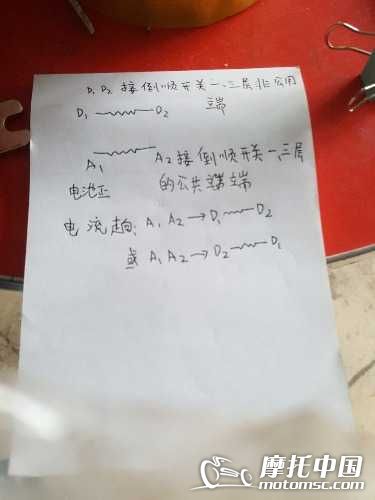 D₁ D₂ 接倒顺开关一、三层非公用
端
D₁ D₂
A₁ A₂接倒顺开关一、三层
电池正 的公共端端
电流趋向: A₁ A₂→D₁ D₂
或 A₁ A₂→D₂ D₁
摩托中国
motomsc.com